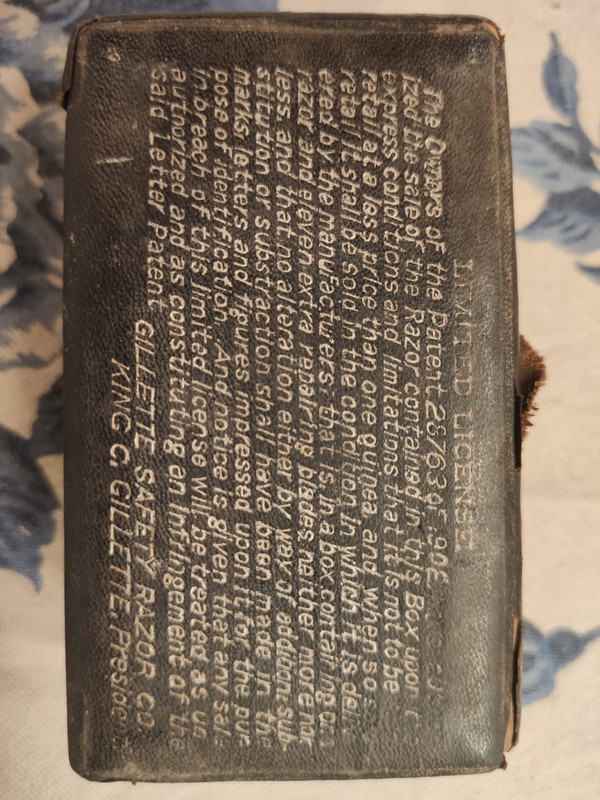 LIMITED LICENSE
The Owners of the Patent 28763 of 902
ized the sale of the Razor contained in this Box upon
express conditions and limitations that it is not to be
retail at a less price than one guinea and when so
retail it shall be sold in the condition in which it is deli
ered by the manufacturers: that is in a box containing one
razor and eleven extra repairing blades neither more nor
less and that no alteration either by way of addition sub-
stitution or substraction shall have been made in the
marks letters and figures impressed upon it for the pur
pose of identification. And notice is given that any sale
in breach of this limited license will be treated as un
authorized and as constituting an infringement of the
said Letter Patent
GILLETTE SAFETY RAZOR CO
KING C. GILLETTE, President